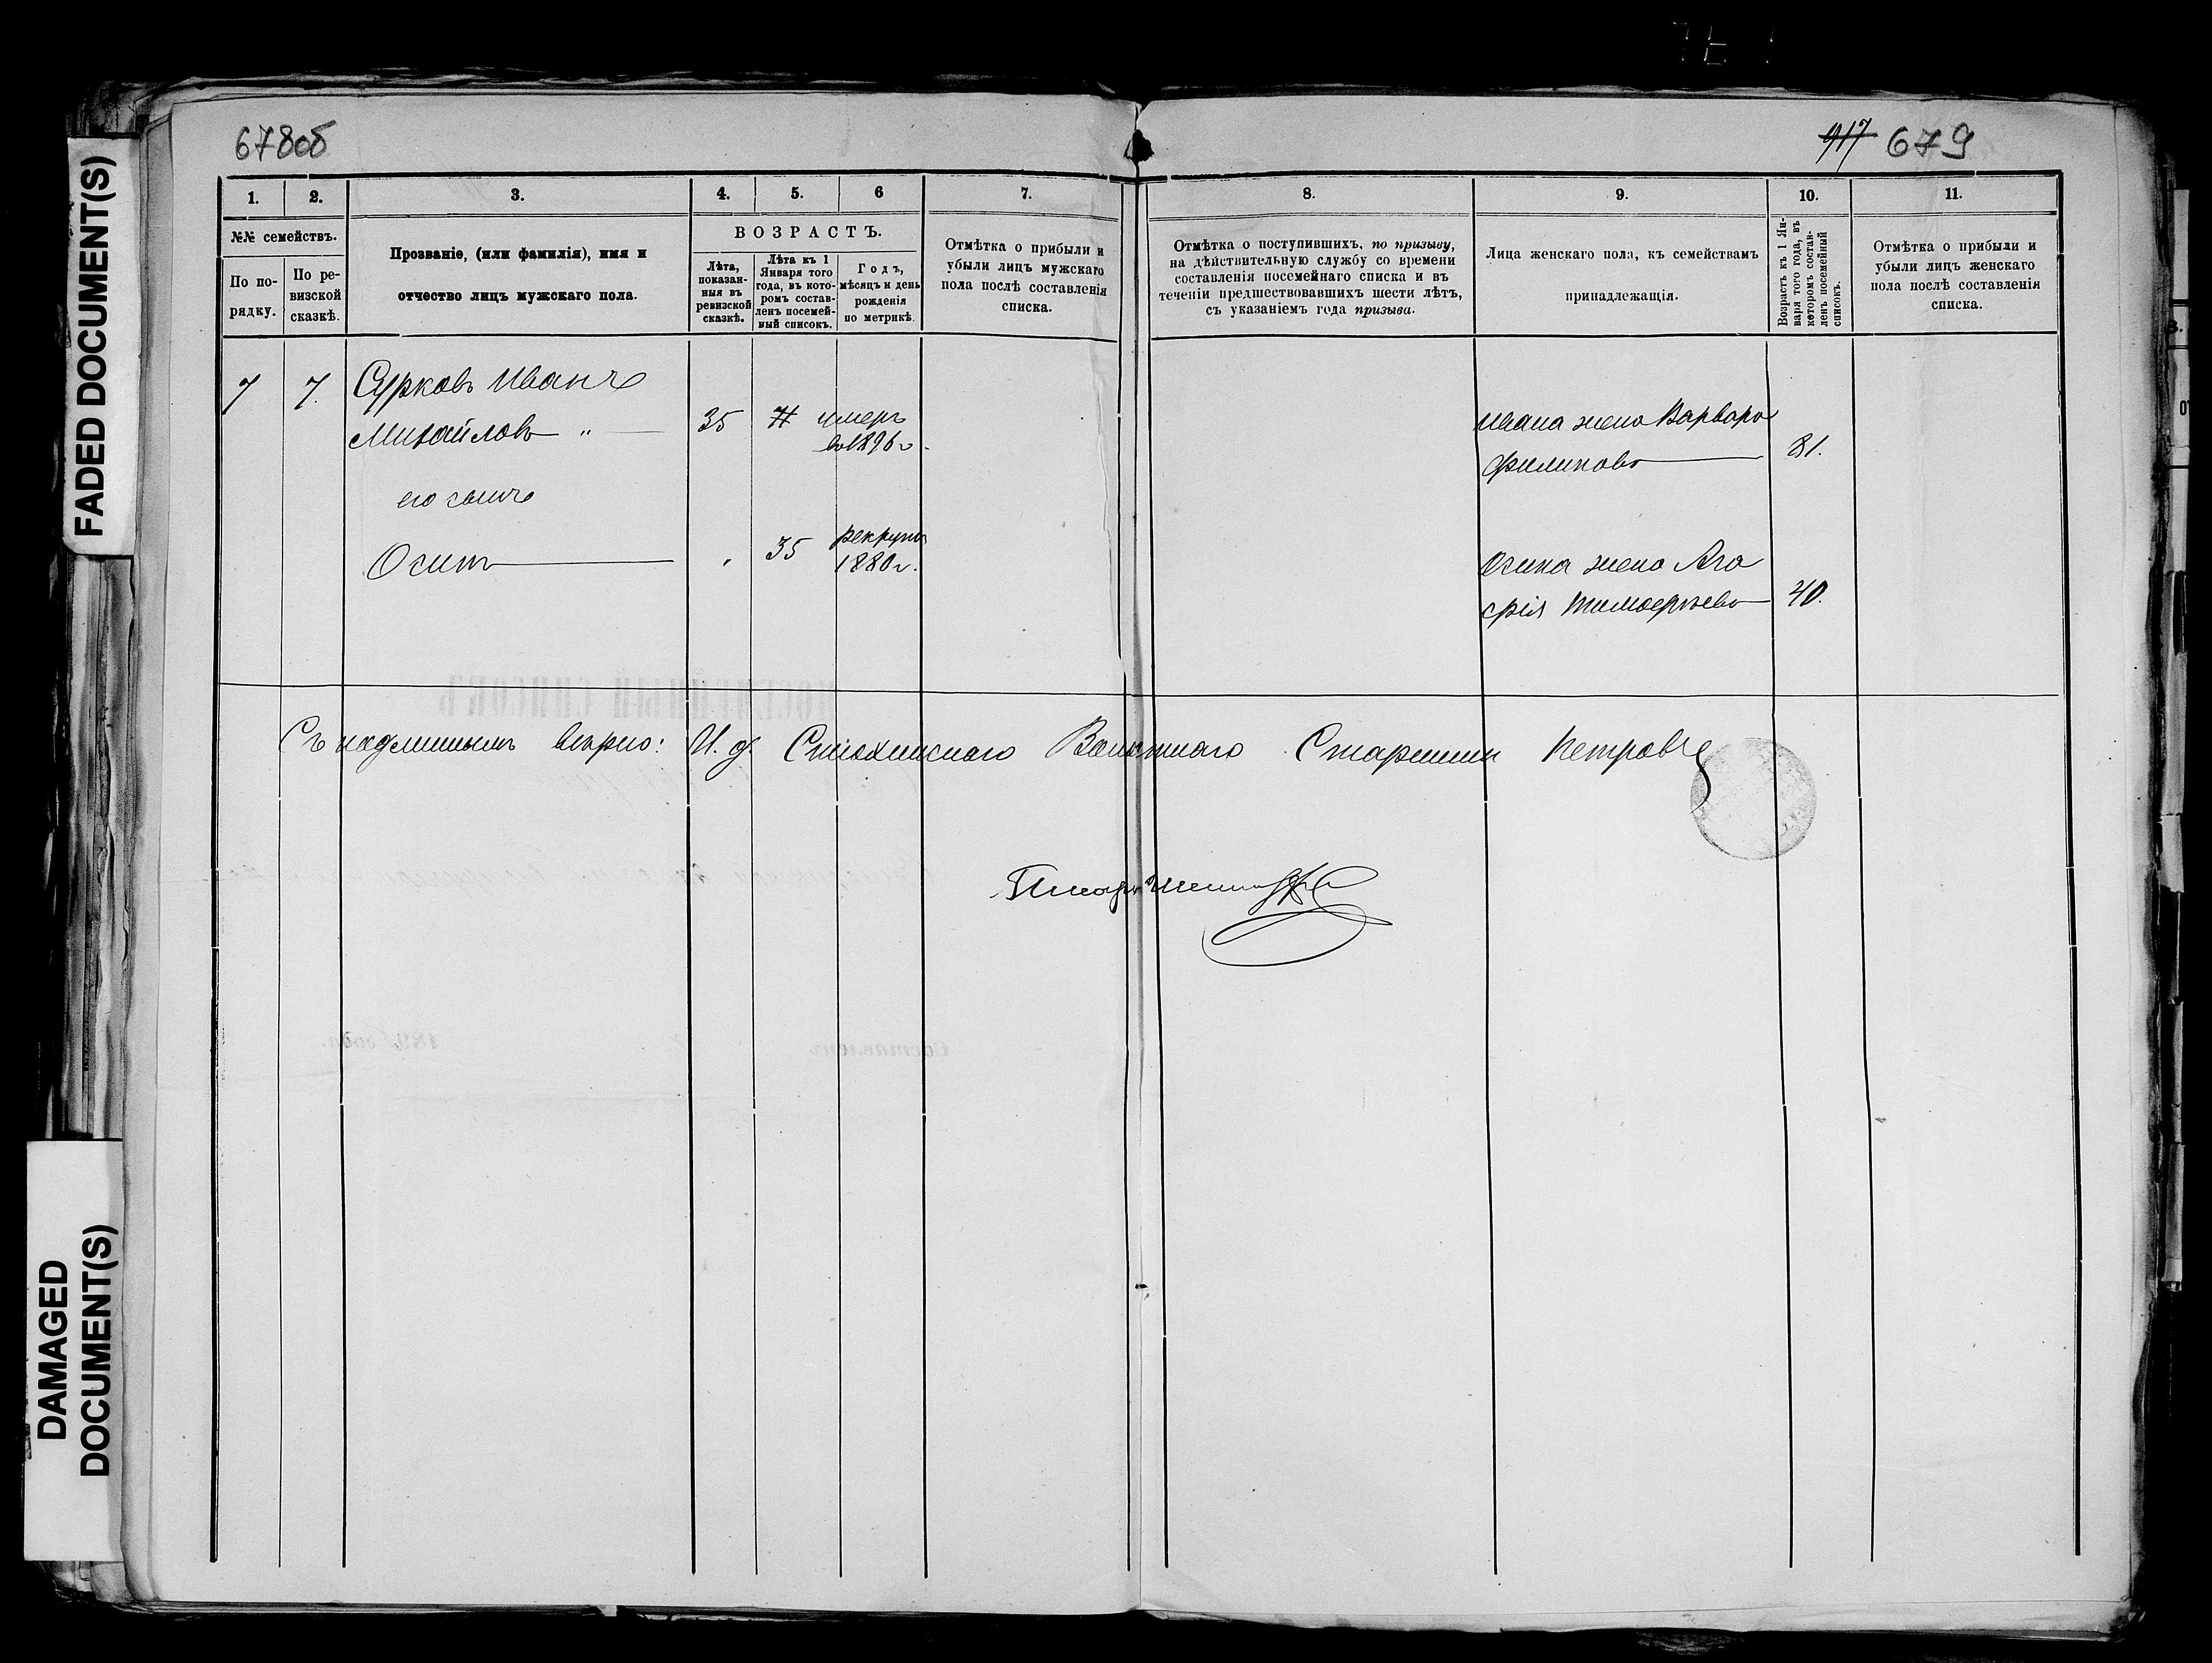 FADED DOCUMENT(S)
DAMAGED
DOCUMENT(S)
678об
917 679
1. 2. 3. 4. 5. 6 7.
№№ семействъ.
По по-
рядку.
По ре-
визской
сказкѣ.
Прозваніе, (или фамилія), имя и
отчество лицъ мужскаго пола.
ВОЗРАСТЪ.
Лѣта,
показан-
ныя въ
ревизской
сказкѣ.
Лѣта къ 1
Января того
года, въ кото-
ромъ состав-
ленъ посемей-
ный списокъ.
Годъ,
мѣсяцъ и день
рожденія
по метрикѣ.
Отмѣтка о прибыли и
убыли лицъ мужскаго
пола послѣ составленія
списка.
8. 9. 10. 11.
Отмѣтка о поступившихъ, по призыву,
на дѣйствительную службу со времени
составленія посемейнаго списка и въ
теченіи предшествовавшихъ шести лѣтъ,
съ указаніемъ года призыва.
Лица женскаго пола, къ семействамъ
принадлежащія.
Возрастъ къ 1 Ян-
варя того года, въ
которомъ состав-
ленъ посемейный
списокъ.
Отмѣтка о прибыли и
убыли лицъ женскаго
пола послѣ составленія
списка.
7 7. Сурковъ Иванъ
Михайловъ " 35 умеръ
въ 1896 г.
его сынъ
Осипъ 35 рекрутъ
1880 г.
Ивана жена Варвара
Филипова 81.
Осипа жена Ага
фія Тимофѣева 40.
Съ подлиннымъ вѣрно: И. д. Волостнаго Старшины Петровъ
Писарь
ПОСЕМЕЙНЫЙ СПИСОКЪ
Составленъ
года.